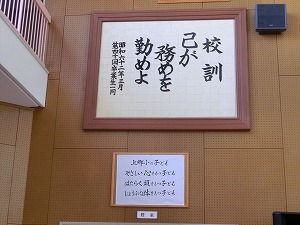 校訓
己が
務めを
勤めよ
昭和六十二年三月
第四十回卒業生一同
上郷小の子ども
やさしい心をもつ子ども
はたらく頭をもつ子ども
じょうぶな体をもつ子ども
校章